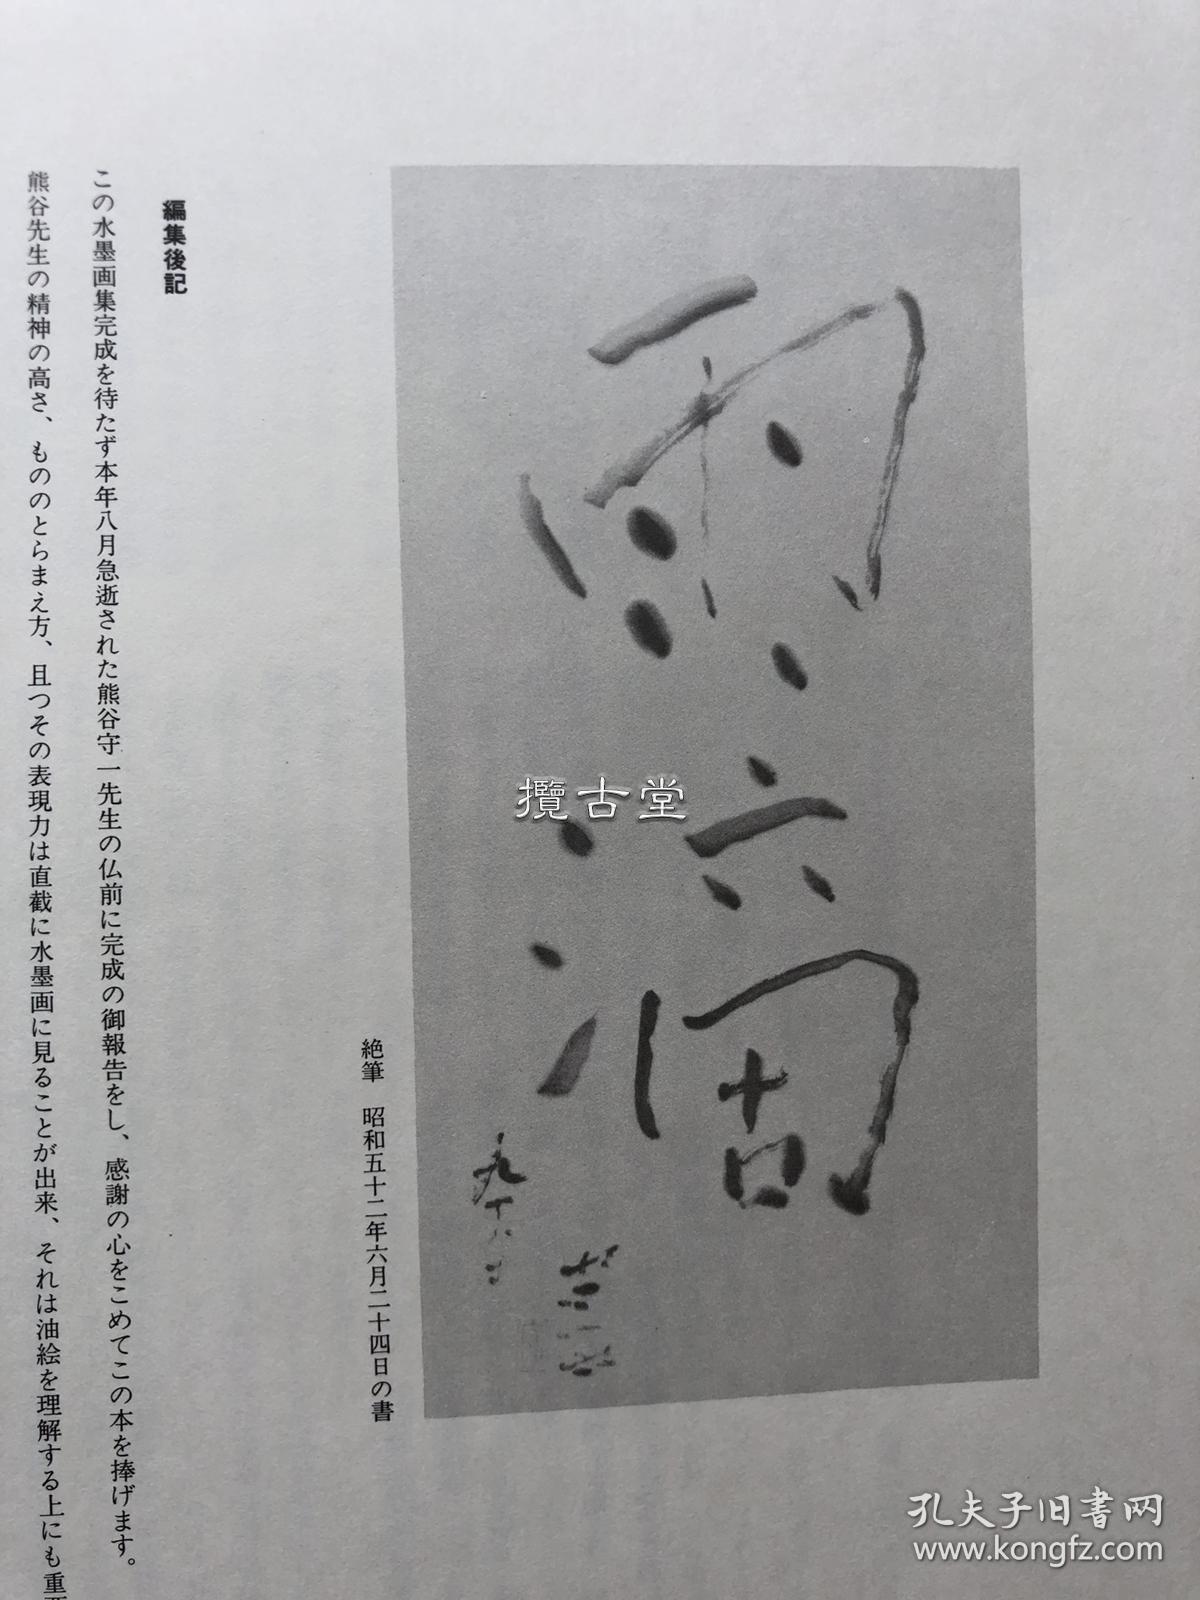 雨滴
絶筆 昭和五十二年六月二十四日の書
編集後記
この水墨画集完成を待たず本年八月急逝された熊谷守一先生の仏前に完成の御報告をし、感謝の心をこめてこの本を捧げます。
熊谷先生の精神の高さ、もののとらまえ方、且つその表現力は直截に水墨画に見ることが出来、それは油絵を理解する上にも重
攬古堂
孔夫子旧书网
www.kongfz.com